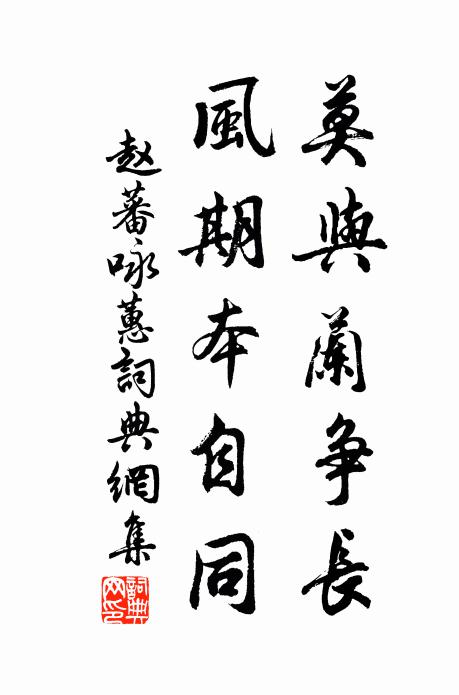 莫與蘭争長
風期本自同
赵蕃咏蕙詞典網集
詞典网印